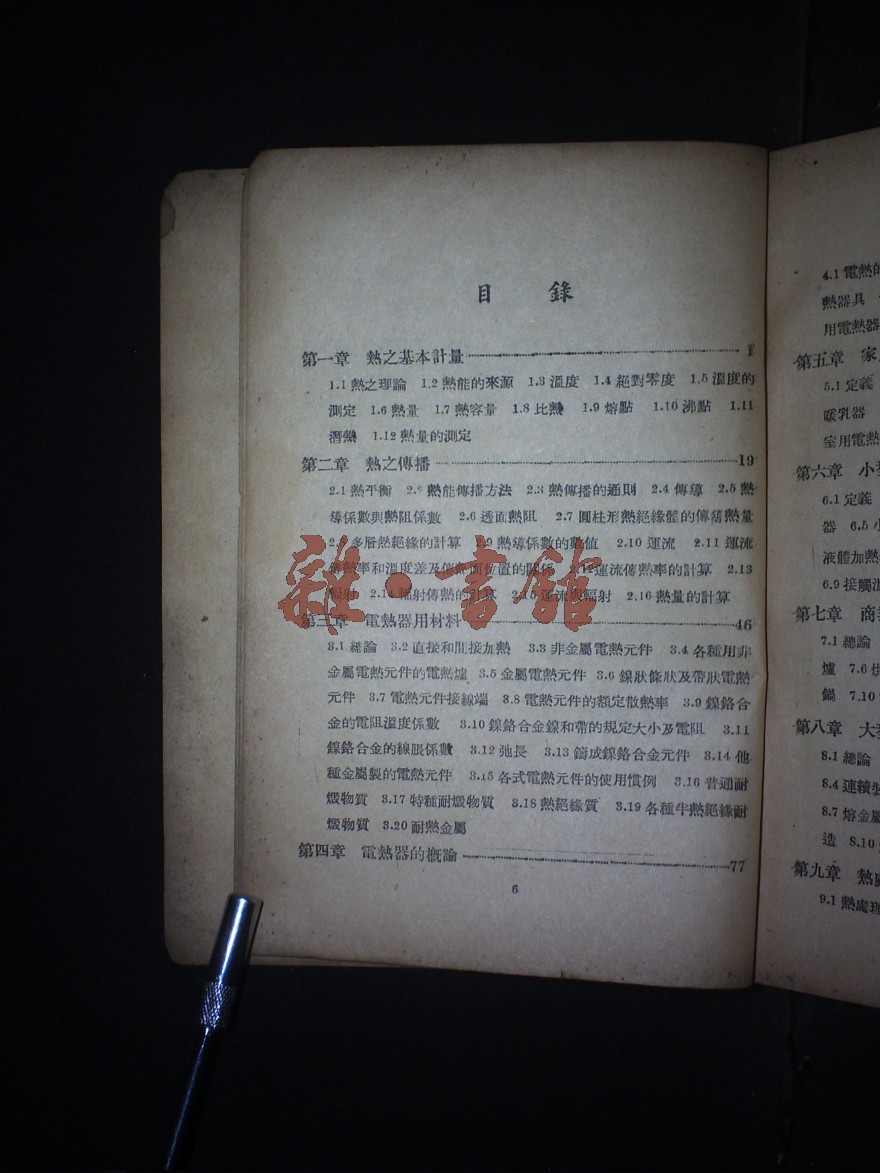 目 錄
第一章 熱之基本計量
1.1 熱之理論 1.2 熱能的來源 1.3 溫度 1.4 絕對零度 1.5 溫度的
測定 1.6 熱量 1.7 熱容量 1.8 比熱 1.9 熔點 1.10 沸點 1.11
潛熱 1.12 熱量的測定
第二章 熱之傳播 19
2.1 熱平衡 2.2 熱能傳播方法 2.3 熱傳播的通則 2.4 傳導 2.5 熱
導係數與熱阻係數 2.6 透面熱阻 2.7 圓柱形熱絕緣體的傳導熱量
2.8 多層熱絕緣的計算 2.9 熱導係數的數值 2.10 運流 2.11 運流
傳熱率和溫度差及傳熱面位置的關係 2.12 運流傳熱率的計算 2.13
輻射 2.14 輻射傳熱的計算 2.15 運流與輻射 2.16 熱量的計算
第三章 電熱器用材料 46
3.1 總論 3.2 直接和間接加熱 3.3 非金屬電熱元件 3.4 各種用非
金屬電熱元件的電熱爐 3.5 金屬電熱元件 3.6 線狀條狀及帶狀電熱
元件 3.7 電熱元件接線端 3.8 電熱元件的額定散熱率 3.9 鎳鉻合
金的電阻溫度係數 3.10 鎳鉻合金線和帶的規定大小及電阻 3.11
鎳鉻合金的線脹係數 3.12 弛長 3.13 鑄成鎳鉻合金元件 3.14 他
種金屬製的電熱元件 3.15 各式電熱元件的使用慣例 3.16 普通耐
燬物質 3.17 特種耐燬物質 3.18 熱絕緣質 3.19 各種半熱絕緣耐
燬物質 3.20 耐熱金屬
第四章 電熱器的概論 77
6
4.1 電熱的
熱器具
用電熱器
第五章 家
5.1 定義
哺乳器
室用電熱
第六章 小
6.1 定義
器 6.5 小
液體加熱
6.9 接觸
第七章 商
7.1 總論
爐 7.6 烘
鍋 7.10
第八章 大
8.1 總論
8.4 連續
8.7 熔金屬
造 8.10
第九章 熱處
9.1 熱處理
雜·書館